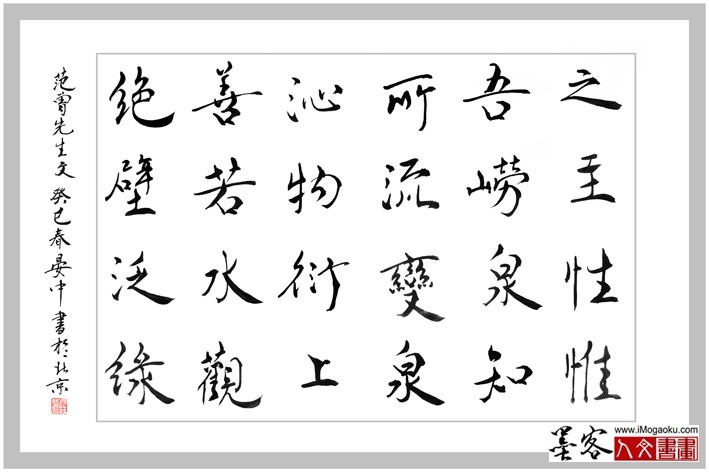 之至性惟
吾嶗泉知
所流變泉
沁物衍上
善若水觀
絕壁泛緣
范曾先生文 癸巳春晏中書於北京
墨客
人文書畫
www.iMogaoku.com